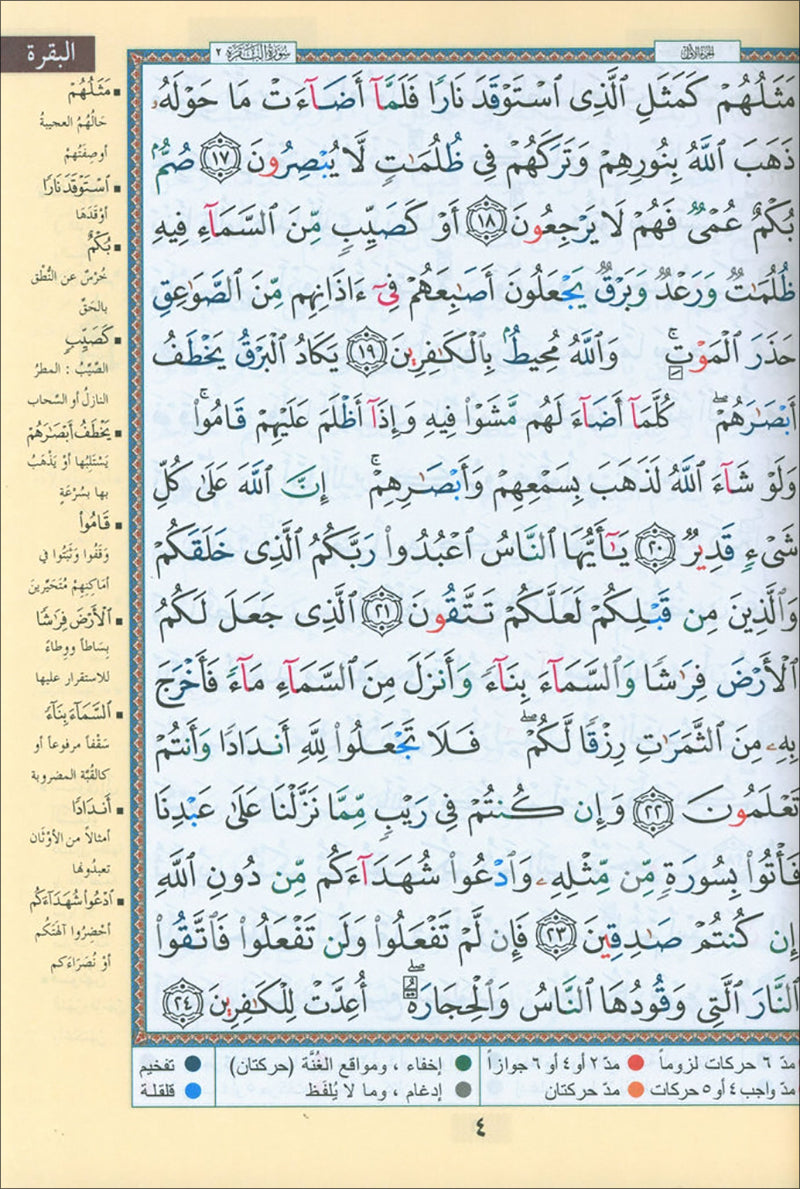 البقرة
سُورَةُ البَقَرَة ٢
الجزء الأول
مَثَلُهُمْ كَمَثَلِ ٱلَّذِى ٱسْتَوْقَدَ نَارًا فَلَمَّآ أَضَآءَتْ مَا حَوْلَهُۥ
ذَهَبَ ٱللَّهُ بِنُورِهِمْ وَتَرَكَهُمْ فِى ظُلُمَٰتٍ لَّا يُبْصِرُونَ ١٧ صُمٌّۢ
بُكْمٌ عُمْىٌ فَهُمْ لَا يَرْجِعُونَ ١٨ أَوْ كَصَيِّبٍ مِّنَ ٱلسَّمَآءِ فِيهِ
ظُلُمَٰتٌ وَرَعْدٌ وَبَرْقٌ يَجْعَلُونَ أَصَٰبِعَهُمْ فِىٓ ءَاذَانِهِم مِّنَ ٱلصَّوَٰعِقِ
حَذَرَ ٱلْمَوْتِ ۚ وَٱللَّهُ مُحِيطٌۢ بِٱلْكَٰفِرِينَ ١٩ يَكَادُ ٱلْبَرْقُ يَخْطَفُ
أَبْصَٰرَهُمْ ۖ كُلَّمَآ أَضَآءَ لَهُم مَّشَوْا۟ فِيهِ وَإِذَآ أَظْلَمَ عَلَيْهِمْ قَامُوا۟ ۚ
وَلَوْ شَآءَ ٱللَّهُ لَذَهَبَ بِسَمْعِهِمْ وَأَبْصَٰرِهِمْ ۚ إِنَّ ٱللَّهَ عَلَىٰ كُلِّ
شَىْءٍ قَدِيرٌ ٢٠ يَٰٓأَيُّهَا ٱلنَّاسُ ٱعْبُدُوا۟ رَبَّكُمُ ٱلَّذِى خَلَقَكُمْ
وَٱلَّذِينَ مِن قَبْلِكُمْ لَعَلَّكُمْ تَتَّقُونَ ٢١ ٱلَّذِى جَعَلَ لَكُمُ
ٱلْأَرْضَ فِرَٰشًا وَٱلسَّمَآءَ بِنَآءً وَأَنزَلَ مِنَ ٱلسَّمَآءِ مَآءً فَأَخْرَجَ
بِهِۦ مِنَ ٱلثَّمَرَٰتِ رِزْقًا لَّكُمْ ۖ فَلَا تَجْعَلُوا۟ لِلَّهِ أَندَادًا وَأَنتُمْ
تَعْلَمُونَ ٢٢ وَإِن كُنتُمْ فِى رَيْبٍ مِّمَّا نَزَّلْنَا عَلَىٰ عَبْدِنَا
فَأْتُوا۟ بِسُورَةٍ مِّن مِّثْلِهِۦ وَٱدْعُوا۟ شُهَدَآءَكُم مِّن دُونِ ٱللَّهِ
إِن كُنتُمْ صَٰدِقِينَ ٢٣ فَإِن لَّمْ تَفْعَلُوا۟ وَلَن تَفْعَلُوا۟ فَٱتَّقُوا۟
ٱلنَّارَ ٱلَّتِى وَقُودُهَا ٱلنَّاسُ وَٱلْحِجَارَةُ ۖ أُعِدَّتْ لِلْكَٰفِرِينَ ٢٤
مَثَلُهُمْ
حَالُهُمُ العجيبةُ
أوصِفَتُهمْ
ٱسْتَوْقَدَ نَارًا
أوْقَدَهَا
بُكْمٌ
خُرْسٌ عن النُّطْق
بالحَقِّ
كَصَيِّبٍ
الصَّيِّبُ : المطرُ
النازلُ أو السَّحاب
يَخْطَفُ أَبْصَٰرَهُمْ
يَسْتَلِبُها أوْ يَذْهَبُ
بها بسُرْعَةٍ
قَامُوا۟
وَقَفُوا وَثَبَتُوا في
أمَاكِنِهِمْ مُتَحَيِّرينَ
ٱلْأَرْضَ فِرَٰشًا
بِسَاطاً ووِطاءً
للاستقرار عليها
ٱلسَّمَآءَ بِنَآءً
سَقْفاً مرفوعاً أو
كالقُبَّةِ المضروبة
أَندَادًا
أمثالاً من الأوْثَان
تعبدُونها
ٱدْعُوا۟ شُهَدَآءَكُم
أحْضِرُوا آلهَتَكُم
أوْ نُصَرَاءَكم
مدّ ٦ حركات لزوماً مدّ ٢ أو ٤ أو ٦ جوازاً إخفاء ، ومواقع الغُنَّة (حركتان) تفخيم
مدّ واجب ٤ أو ٥ حركات مدّ حركتان إدغام ، وما لا يُلفَظ قلقلة
٤